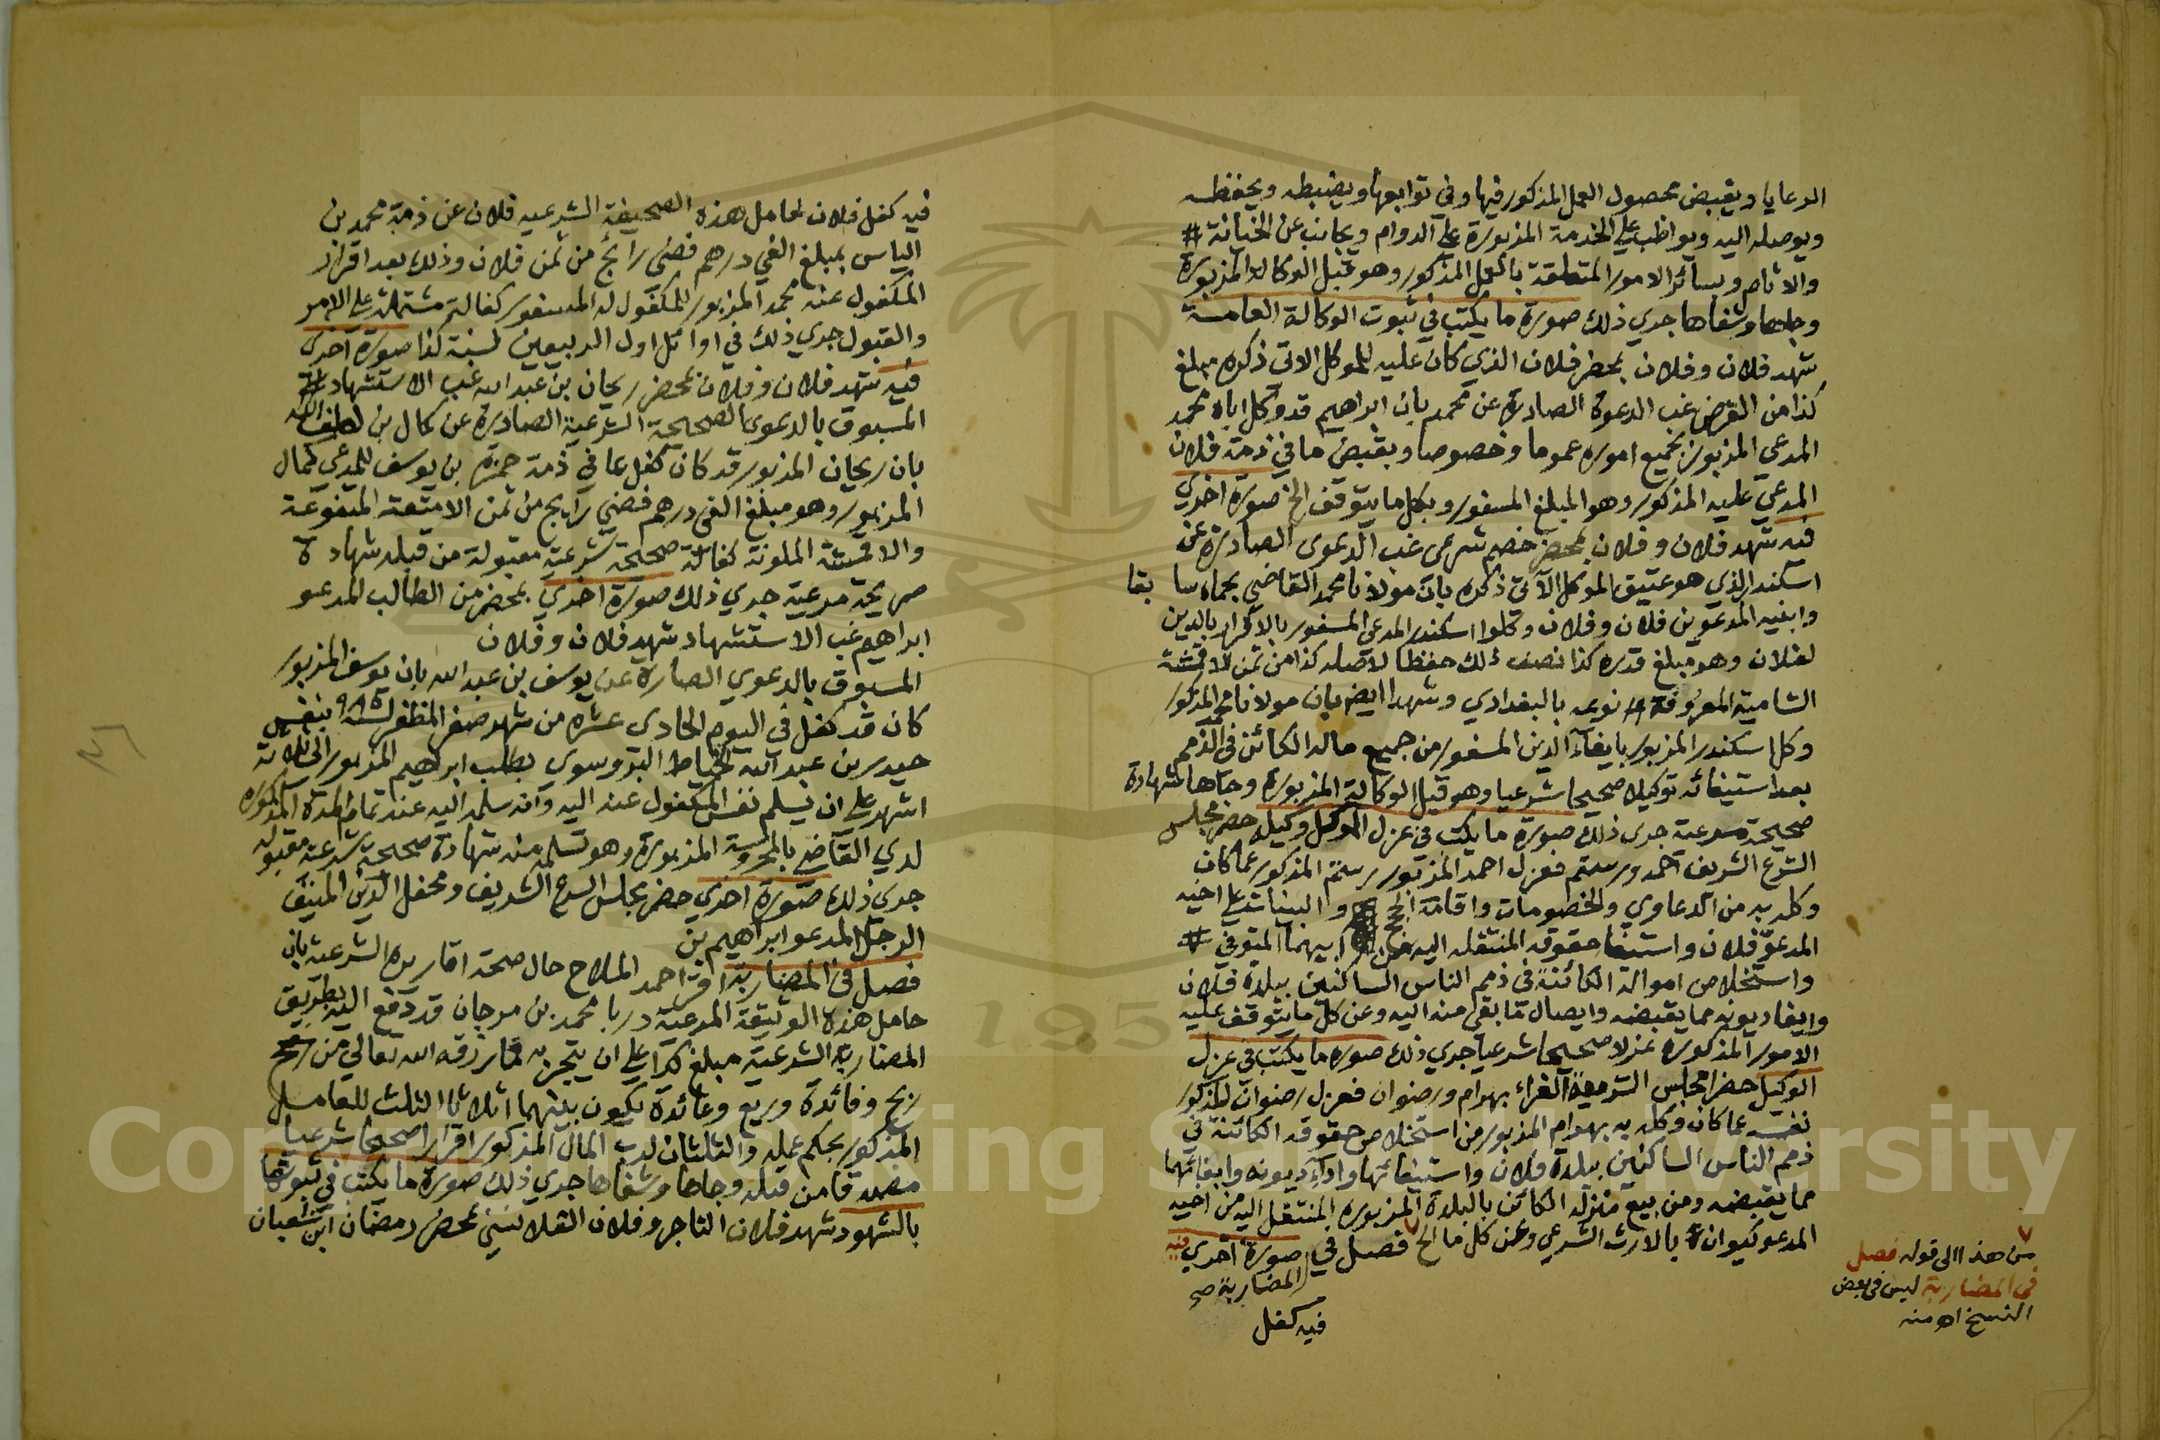 الرعايا ويقبض محصول العمل المذكور فيها وفي توابعها ويضبطه ويحفظه
ويوصله اليه ويواظب علي الخدمة المزبورة علي الدوام ويجانب عن الخيانة #
والاثام وسائر الامور المتعلقة بالعمل المذكور وهو قبل الوكالة المزبورة
وجاها وشفاها جري ذلك صورة ما يكتب في ثبوت الوكالة العامة
شهد فلان وفلان بمحضر فلان الذي كان عليه للموكل الاتي ذكره مبلغ
كذا من القرض غب الدعوة الصادرة عن محمد بان ابراهيم قد وكل اباه محمد
المدعي المزبور بجميع اموره عموما وخصوصا وبقبض ما في ذمة فلان
المدعي عليه المذكور وهو المبلغ المسفور وبكل ما يتوقف الخ صورة اخري
فيه شهد فلان وفلان بمحضر خصم شرعي غب الدعوى الصادرة عن
اسكندر الذي هو عتيق الموكل الآتي ذكره بان مولانا محمد القاضي بحماه سابقا
وابنيه المدعوين فلان وفلان وكلوا اسكندر المدعي المسفور بالاقرار بالدين
لفلان وهو مبلغ قدره كذا نصف ذلك حفظا لاصله كذا من ثمن الاقمشة
الشامية المعروفة # نوعه بالبغدادي وشهدا ايضا بان مولانا محمد المذكور
وكل اسكندر المزبور بايفاء الدين المسفور من جميع ماله الكائن في الذمم
بعد استيفائه توكيلا صحيحا شرعيا وهو قبل الوكالة المزبورة وجاها شهادة
صحيحة مرعية جري ذلك صورة ما يكتب في عزل الموكل وكيله حضر مجلس
الشرع الشريف احمد ورستم فعزل احمد المزبور رستم المذكور عما كان
وكله به من الدعاوي والخصومات واقامة الحجج والبينات علي اخيه
المدعو فلان واستيفا حقوقه المنتقله اليه من ابيهما المتوفي #
واستخلاص امواله الكائنة في ذمم الناس الساكنين ببلدة فلان
وايفا ديونه مما يقبضه وايصال ما بقي منه اليه وعن كل ما يتوقف عليه
الامور المذكورة عزلا صحيحا شرعيا جري ذلك صورة ما يكتب في عزل
الوكيل حضر مجلس الشريعة الغراء بهرام ورضوان فعزل رضوان المذكور
نفسه عما كان وكله به بهرام المزبور من استخلاص حقوقه الكائنة في
ذمم الناس الساكنين ببلدة فلان واستيفائها واداء ديونه وايفائهما
مما يقبضه ومن بيع منزله الكائن بالبلدة المزبورة المنتقل اليه من اخيه
المدعو كيوان بالارث الشرعي وعن كل ما الخ ٧ فصل في صورة اخري فيه
المضاربة صح
فيه كفل
٧
من هذا الى قوله فصل
في المضاربة ليس في بعض
النسخ اه منه
فيه كفل فلان لحامل هذه الصحيفة الشرعيه فلان عن ذمة محمد بن
الياس بمبلغ الفي درهم فضي رايج من ثمن فلان وذلك بعد اقرار
المكفول عنه محمد المزبور للمكفول له المسفور كفالة مشتملة علي الامر
والقبول جري ذلك في اوائل اول الربيعين لسنة كذا صورة اخرى
فيه شهد فلان وفلان بمحضر ريحان بن عبد الله غب الاستشهاد
المسبوق بالدعوى الصحيحة الشرعية الصادرة عن كمال بن لطف الله
بان ريحان المزبور قد كان كفل عما في ذمة حمزة بن يوسف للمدعي كمال
المزبور وهو مبلغ الفي درهم فضي رايج من ثمن الامتعة المتنوعة
والاقمشة الملونة كفالة صحيحة شرعية مقبولة من قبله شهادة
صريحة مرعية جري ذلك صورة اخري بمحضر من الطالب المدعو
ابراهيم غب الاستشهاد شهد فلان وفلان
المسبوق بالدعوي الصادرة عن يوسف بن عبد الله بان يوسف المزبور
كان قد كفل في اليوم الحادي عشر من شهر صفر المظفر لسنة ٩٨٥ بنفس
حيدر بن عبد الله الخياط البروسوي بطلب ابراهيم المزبور الى ثلاثة
اشهر علي ان يسلم نفس المكفول عنه اليه وانه سلمه اليه عند تمام المدة المذكورة
لدي القاضي بالمحروسة المزبورة وهو تسلمه منه شهادة صحيحة شرعية مقبولة
جري ذلك صورة اخري حضر مجلس الشرع الشريف ومحفل الدين المنيف
الرجل المدعو ابراهيم بن
فصل في المضاربة اقر احمد الملاح حال صحة اقاريره الشرعية بان
حامل هذه الوثيقة المرعية محمد بن مرجان قد دفع اليه بطريق
المضاربة الشرعية مبلغ كذا علي ان يتجر به فما رزقه الله تعالي من
ربح وفائدة وريع وعائدة يكون بينهما اثلاثا الثلث للعامل
المذكور بحكم عمله والثلثان لرب المال المذكور اقرارا صحيحا شرعيا
مصدقا من قبله وجاها وشفاها جري ذلك صورة ما يكتب في ثبوتها
بالشهود شهد فلان التاجر وفلان القلانسي بمحضر رمضان ابن شعبان